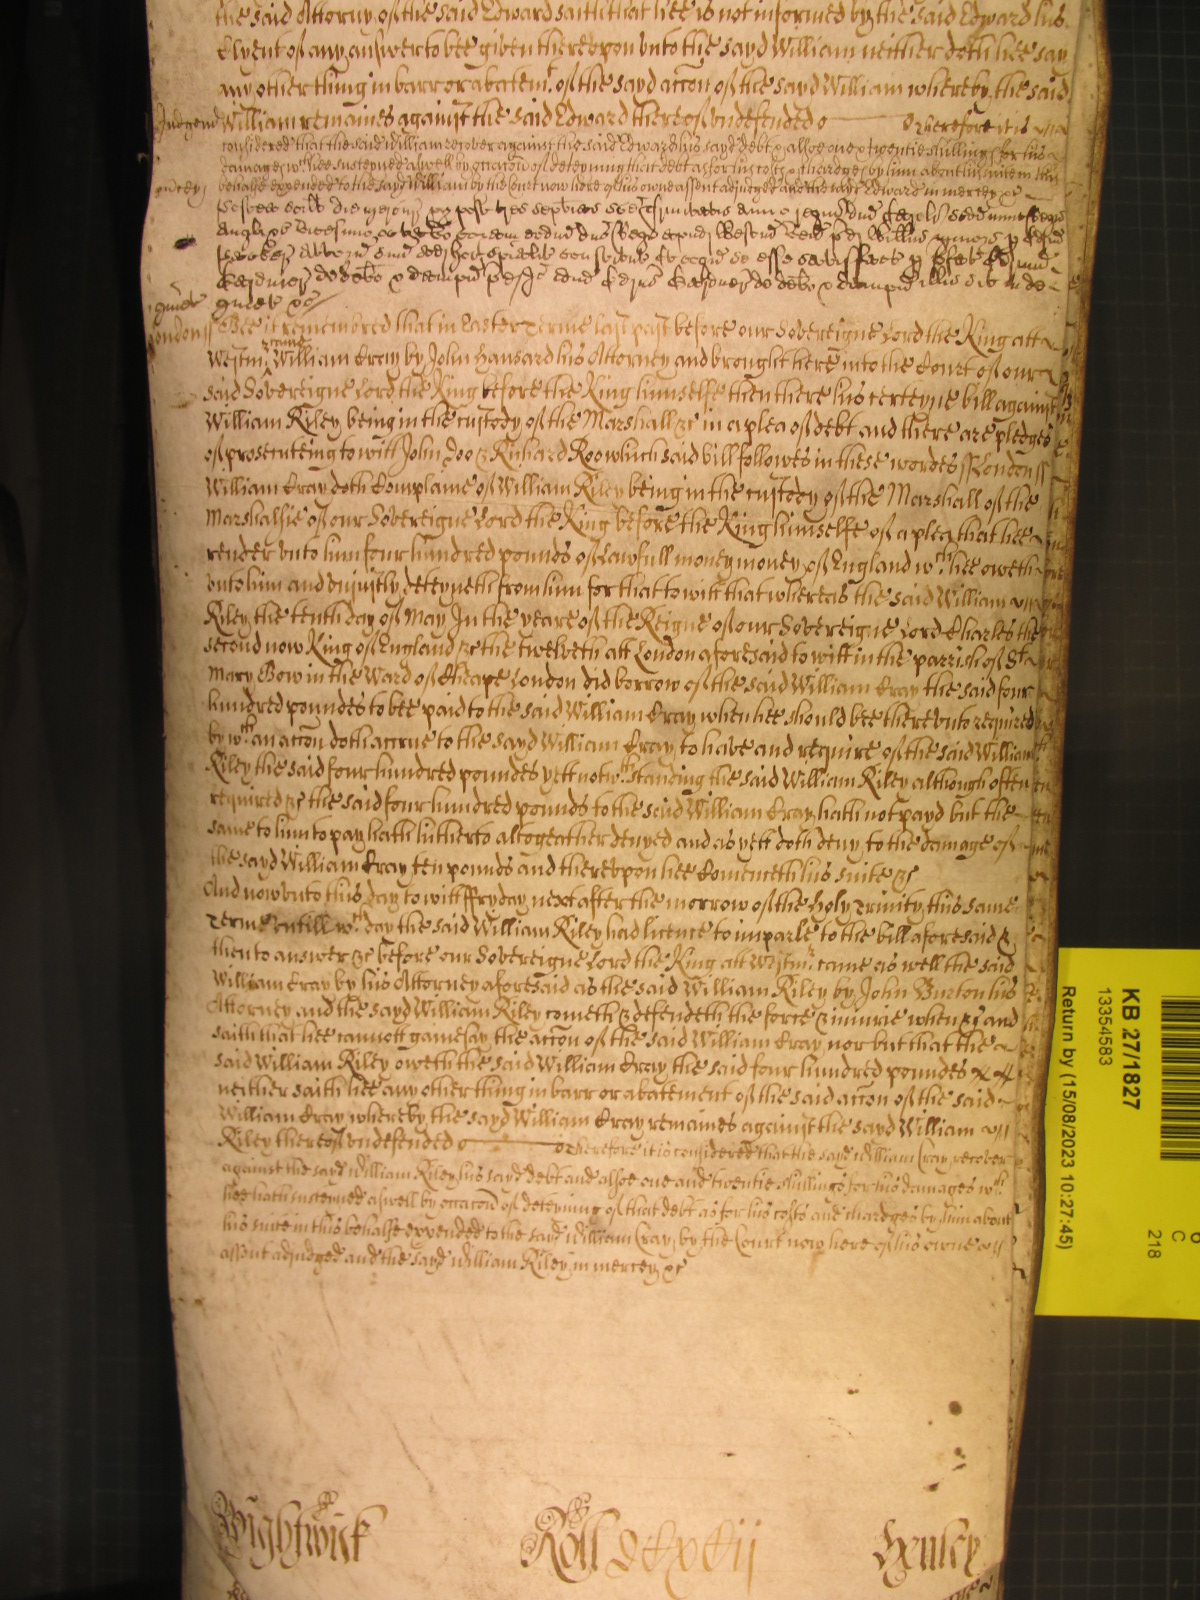 the said Attorny of the said Edward saith that hee is not informed by the said Edward his
Clyent of any answer to bee given thereupon unto the sayd William neither doth hee say
any other thing in barr or abatemt of the sayd accon of the sayd William whereby the said
Judgmt William remaines against the said Edward thereof undefended Therefore it is
considered that the said William recover against the said Edward his sayd debt & alsoe one & twentie shillings for his
damages wch hee susteyned aswell by occacon of deteyning that debt as for his costs & chardges by him about his suite in this
mercy behalfe expended to the sayd William by the Court now here of his owne assent adjudged and the sayd Edward in mercy &c
quiet quiet &c
London ss Bee it remembred that in Easter Terme last past before our Sovereigne Lord the King att
Westmr came William Cray by John Hansard his Attorney and brought here into the Court of our
said Sovereigne Lord the King before the King himselfe then there his certeyne bill against
William Riley being in the custody of the Marshall &c in a plea of debt and there are pledges
of prosecuteing to witt John Doo & Richard Roo which said bill followes in these wordes ss London ss
William Cray doth Complaine of William Riley being in the custody of the Marshall of the
Marshalsie of our Sovereigne Lord the King before the King himselfe of a plea that hee
render unto him four hundred pounds of Lawfull money money of England wch hee oweth
unto him and unjustly deteyneth from him for that to witt that whereas the said William
Riley the tenth day of May In the yeare of the Reigne of our Sovereigne Lord Charles the
second now King of England &c the twelveth att London aforesaid to witt in the parrish of St
Mary Bow in the Ward of Cheape London did borrow of the said William Cray the said four
hundred poundes to bee paid to the said William Cray when hee should bee thereunto required
by wch an accon doth accrue to the sayd William Cray to have and require of the said William
Riley the said four hundred poundes yett notwthstanding the said William Riley although often
required &c the said four hundred pounds to the said William Cray hath not payd but the
same to him to pay hath hitherto altogeather denyed and as yett doth deny to the damage of
the sayd William Cray ten pounds and thereupon hee Comenceth his suite &c
And now unto this day to witt ffryday next after the morrow of the Holy Trinity this same
Terme untill wch day the said William Riley had licence to imparle to the bill aforesaid &
then to answer &c before our Sovereigne Lord the King att Westmr came as well the said
William Cray by his Attorney aforesaid as the said William Riley by John Burton his
Attorney and the sayd William Riley cometh & defendeth the force & iniurie when &c and
saith that hee cannott gainesay the accon of the said William Cray nor but that the
said William Riley oweth the said William Cray the said four hundred poundes
neither saith hee any other thing in barr or abatement of the said accon of the said
William Cray whereby the sayd William Cray remaines against the sayd William
Riley thereof undefended Therefore it is considered that the sayd William Cray recover
against the sayd William Riley his sayd debt and alsoe one and twentie shillings for his damages wch
hee hath susteyned aswell by occacon of deteyning of that debt as for his costs and chardges by him about
his suite in this behalfe expended to the sayd William Cray by the Court now here of his owne
assent adjudged and the sayd William Riley in mercy &c
Wightwick Roll Henley
KB 27/1827
13354583
Return by (15/08/2023 10:27:45)
C
218